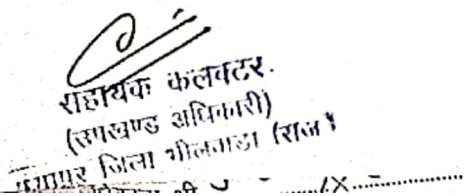 सहायक कलक्टर.
(उपखण्ड अधिकारी)
जिला भीलवाडा (राज
श्री